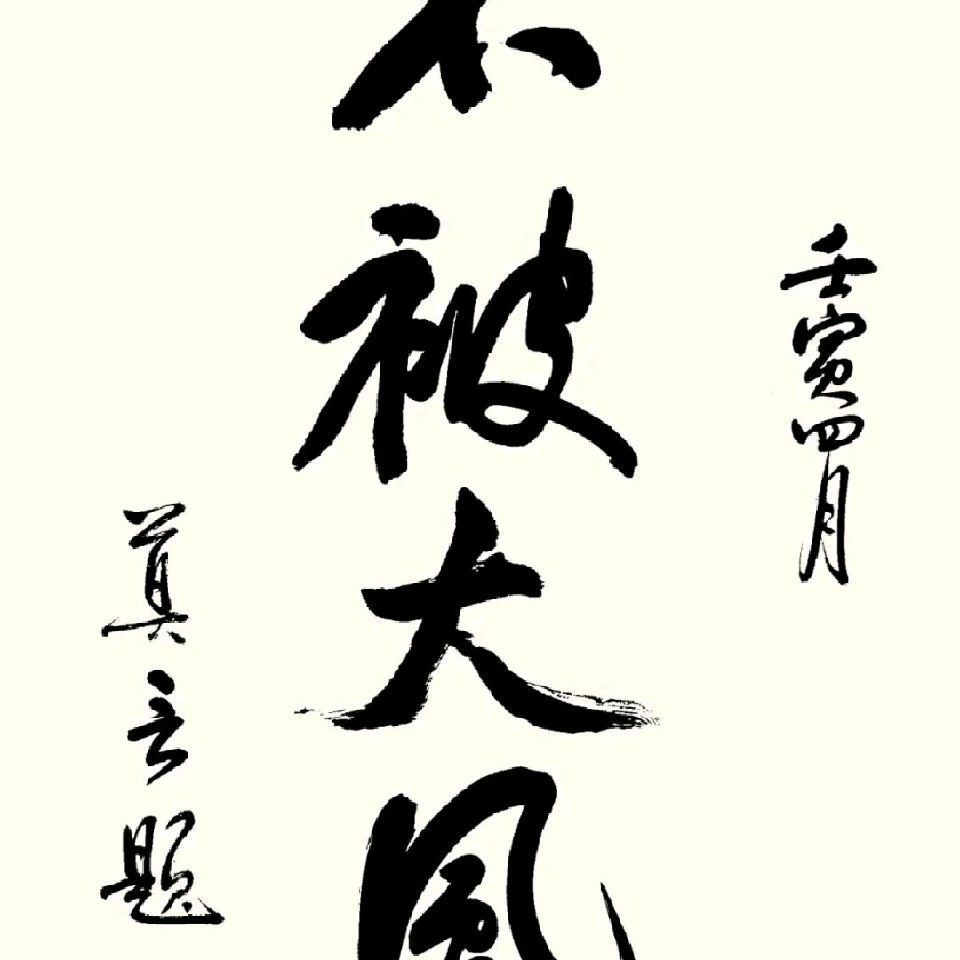 壬寅四月
不被大風
莫言題